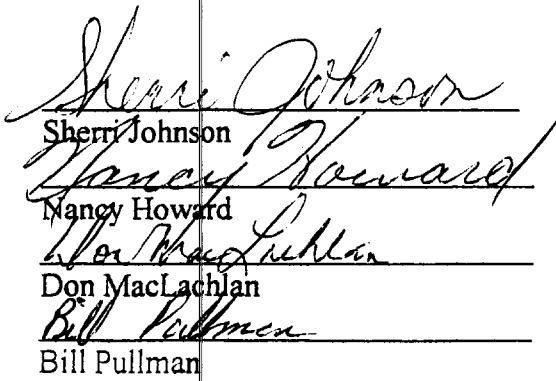 Sherri Johnson
Sherri Johnson
Nancy Howard
Nancy Howard
Don MacLachlan
Don MacLachlan
Bill Pullman
Bill Pullman